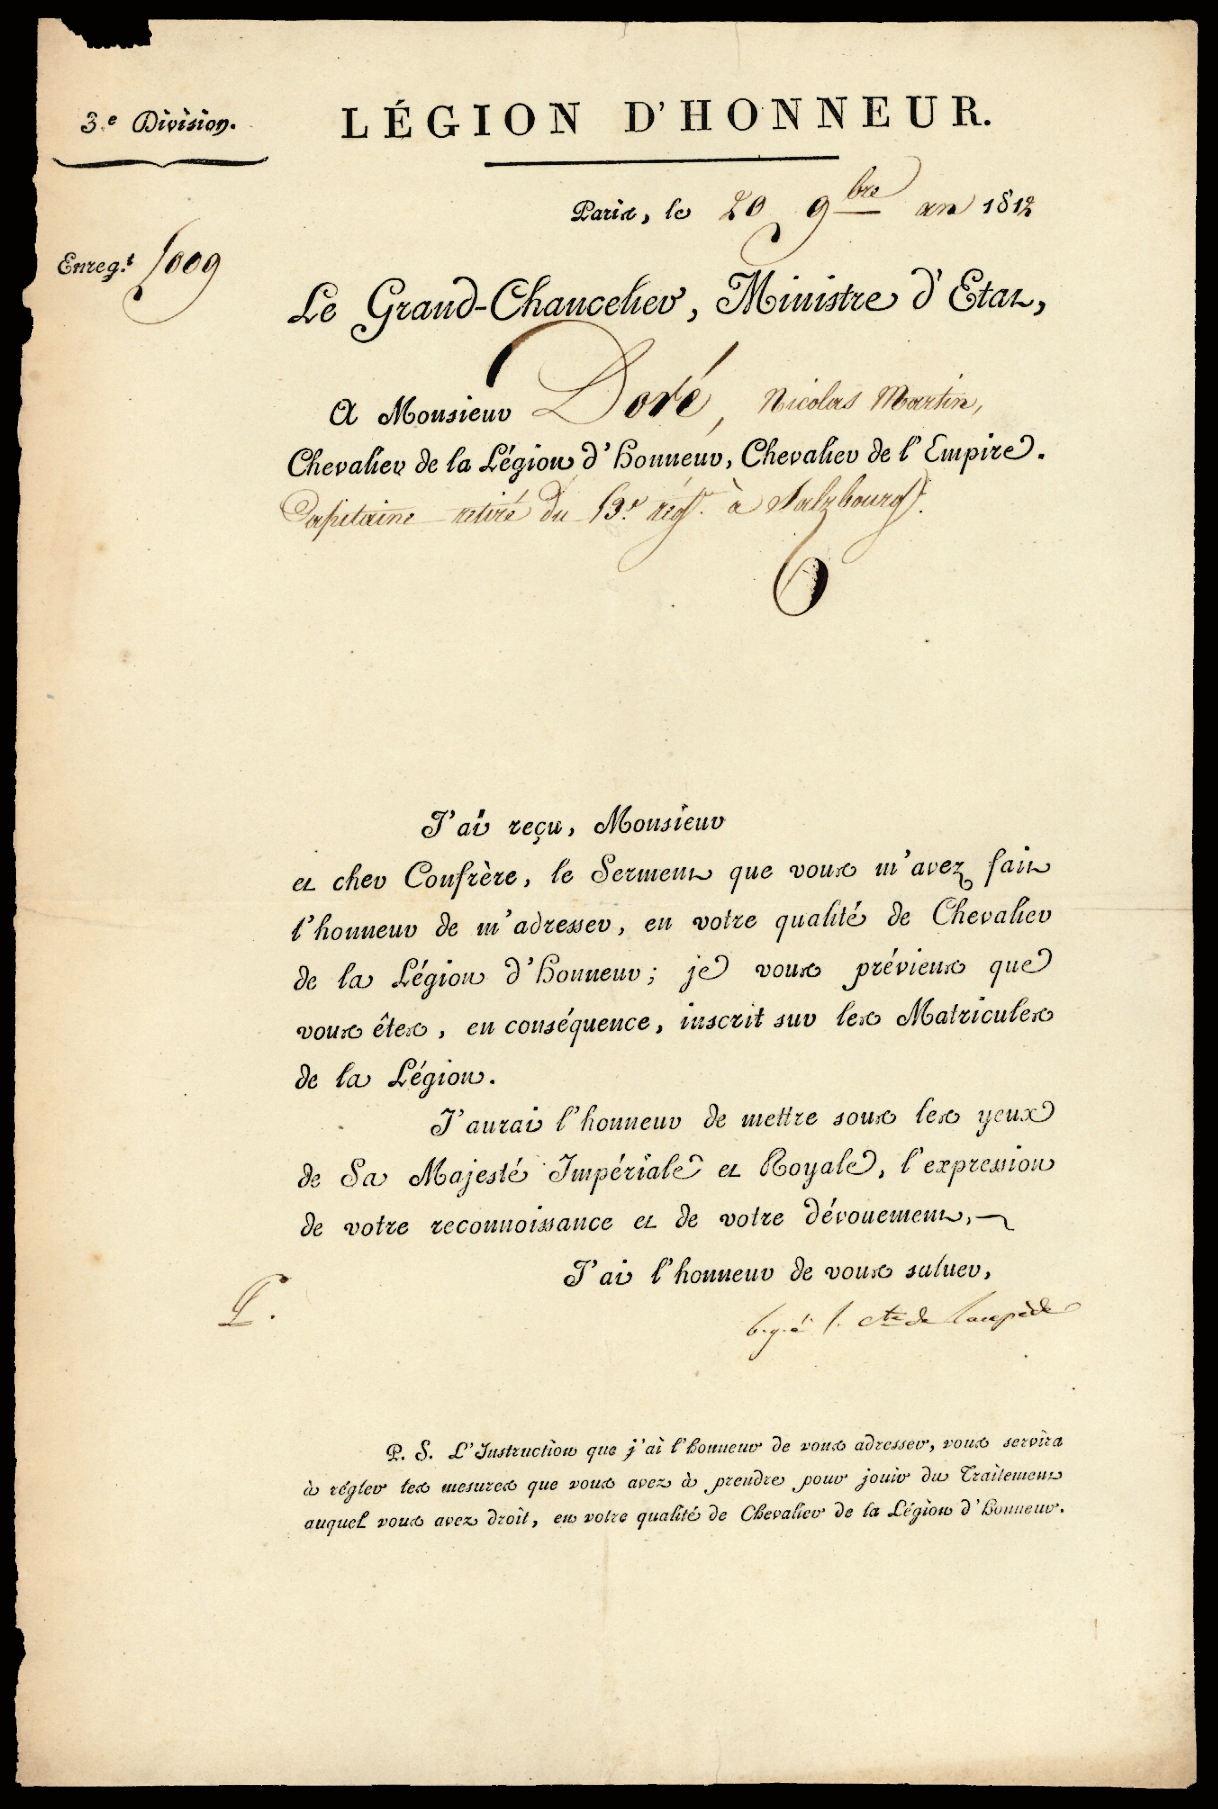 3.e Division.
LÉGION D'HONNEUR.
Paris, le 20 9bre an 1812
Enreg.t 5009
Le Grand-Chancelier, Ministre d'Etat,
A Monsieur Doré, Nicolas Martin,
Chevalier de la Légion d'honneur, Chevalier de l'Empire.
Capitaine retiré du 13.e régt. à Salzbourg.
J'ai reçu, Monsieur
et cher Confrère, le Serment que vous m'avez fait
l'honneur de m'adresser, en votre qualité de Chevalier
de la Légion d'honneur; je vous préviens que
vous êtes, en conséquence, inscrit sur les Matricules
de la Légion.
J'aurai l'honneur de mettre sous les yeux
de Sa Majesté Impériale et Royale, l'expression
de votre reconnoissance et de votre dévouement,
J'ai l'honneur de vous saluer,
b. g. é. l. cte de lacepède
P. S. L'Instruction que j'ai l'honneur de vous adresser, vous servira
à régler les mesures que vous avez à prendre pour jouir du Traitement
auquel vous avez droit, en votre qualité de Chevalier de la Légion d'honneur.